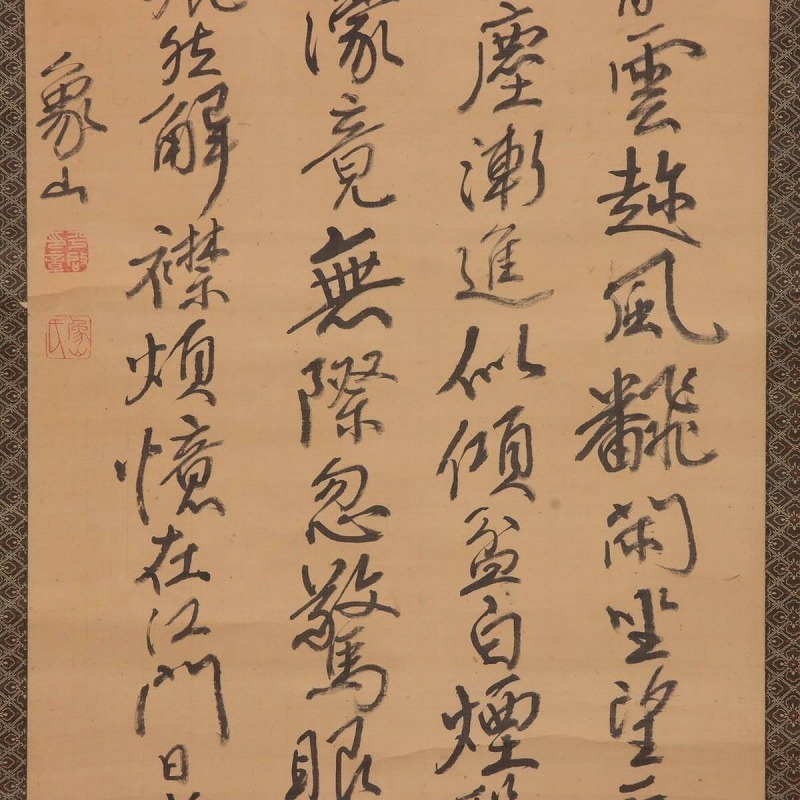 雲趁風飜閑坐望
塵漸進似傾盆白煙
濛竟無際忽驚眼
然解襟煩憶在江門日
象山
象山
氏